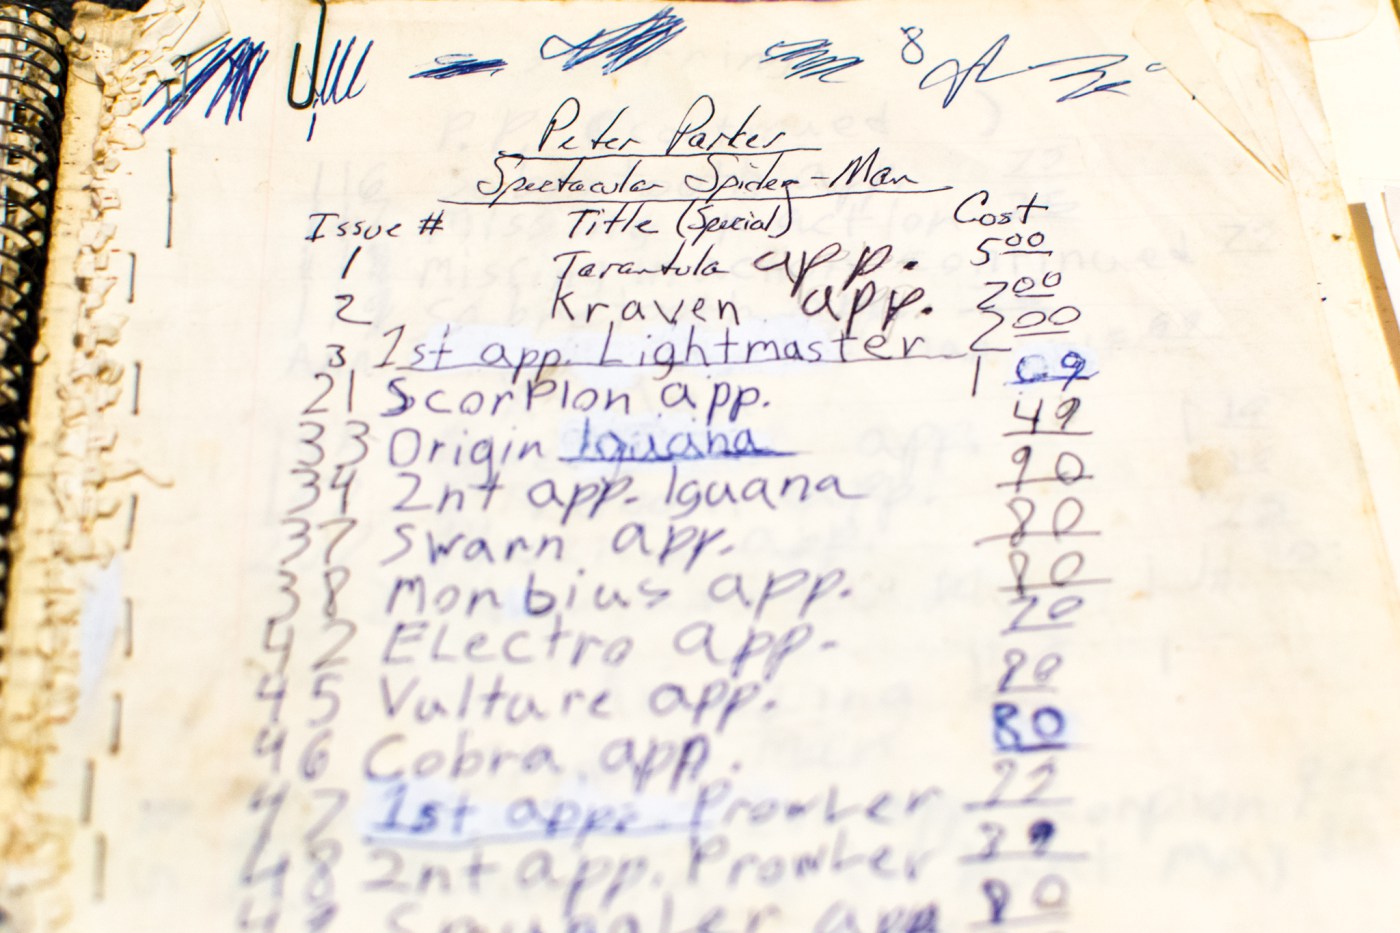 8
Peter Parker
Spectacular Spider-Man
Issue # Title (Special) Cost
1 Tarantula app. 5 00
2 Kraven app. 2 00
3 1st app. Lightmaster 2 00
21 Scorpion app. 1 09
33 Origin Iguana 49
34 2nt app. Iguana 90
37 Swarn app. 80
38 Monbius app. 80
42 Electro app. 20
45 Vulture app.
46 Cobra app. 80
47 1st app. Prowler
48 2nt app. Prowler 39
49 Smuggler app 80